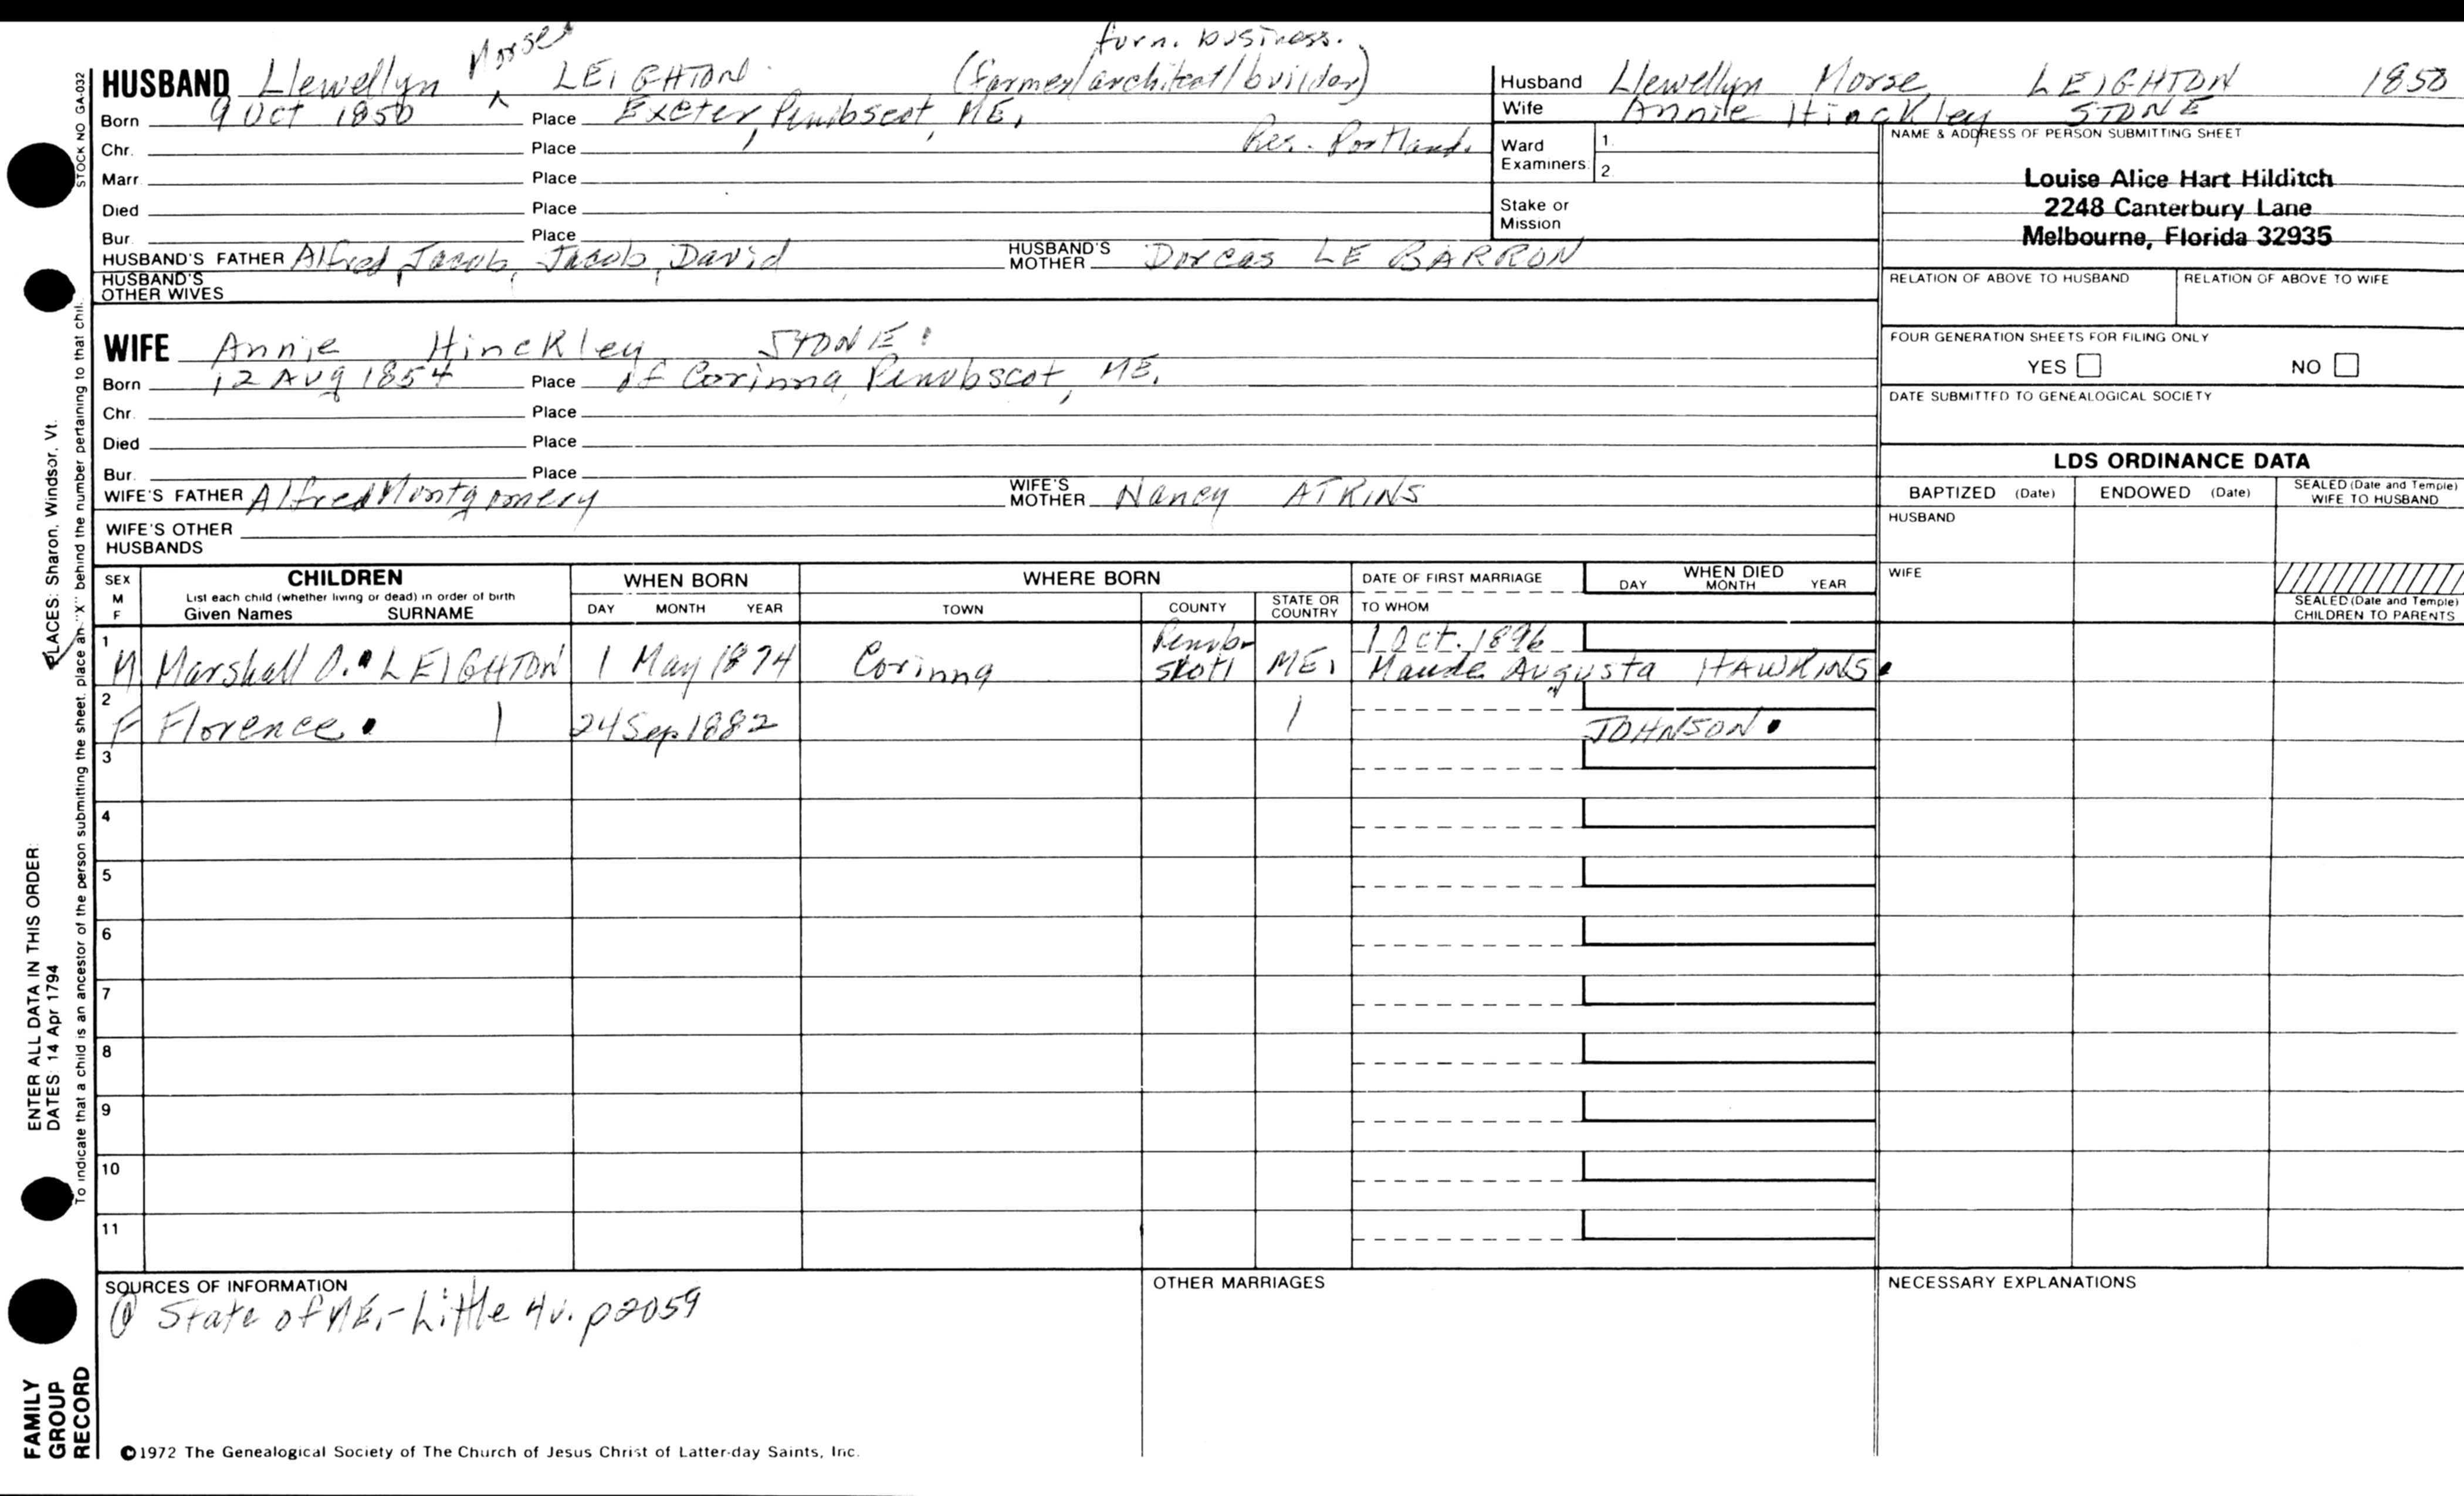 furn. business.
HUSBAND Llewellyn ^ Morse LEIGHTON. (farmer/architect/builder)
Born 9 Oct 1850 Place Exeter, Penobscot, ME.
Chr. Place Res. Portland.
Marr. Place
Died Place
Bur. Place
HUSBAND'S FATHER Alfred, Jacob, Jacob, David HUSBAND'S MOTHER Dorcas LE BARRON
HUSBAND'S
OTHER WIVES
WIFE Annie Hinckley STONE.
Born 12 Aug 1854 Place of Corinna, Penobscot, ME.
Chr. Place
Died Place
Bur. Place
WIFE'S FATHER Alfred Montgomery WIFE'S MOTHER Nancy ATKINS
WIFE'S OTHER
HUSBANDS
Husband Llewellyn Morse LEIGHTON 1850
Wife Annie Hinckley STONE
Ward
Examiners
1.
2.
Stake or
Mission
NAME & ADDRESS OF PERSON SUBMITTING SHEET
Louise Alice Hart Hilditch
2248 Canterbury Lane
Melbourne, Florida 32935
RELATION OF ABOVE TO HUSBAND RELATION OF ABOVE TO WIFE
FOUR GENERATION SHEETS FOR FILING ONLY
YES NO
DATE SUBMITTED TO GENEALOGICAL SOCIETY
LDS ORDINANCE DATA
BAPTIZED (Date) ENDOWED (Date) SEALED (Date and Temple) WIFE TO HUSBAND
HUSBAND
WIFE
SEALED (Date and Temple)
CHILDREN TO PARENTS
SEX
M
F
CHILDREN
List each child (whether living or dead) in order of birth
Given Names SURNAME
WHEN BORN
DAY MONTH YEAR
WHERE BORN
TOWN COUNTY STATE OR COUNTRY
DATE OF FIRST MARRIAGE
TO WHOM
WHEN DIED
DAY MONTH YEAR
1 Penob- 1 Oct. 1896
M Marshall O. LEIGHTON 1 May 1874 Corinna scott ME. Maude Augusta HAWKINS.
2
F Florence. 24 Sep 1882 JOHNSON.
3
4
5
6
7
8
9
10
11
SOURCES OF INFORMATION
① State of ME.-Little 4v. p2059
OTHER MARRIAGES
NECESSARY EXPLANATIONS
©1972 The Genealogical Society of The Church of Jesus Christ of Latter-day Saints, Inc.
STOCK NO GA-032
To indicate that a child is an ancestor of the person submitting the sheet, place an "X" behind the number pertaining to that chil.
ENTER ALL DATA IN THIS ORDER:
DATES: 14 Apr 1794
PLACES: Sharon, Windsor, Vt.
FAMILY
GROUP
RECORD